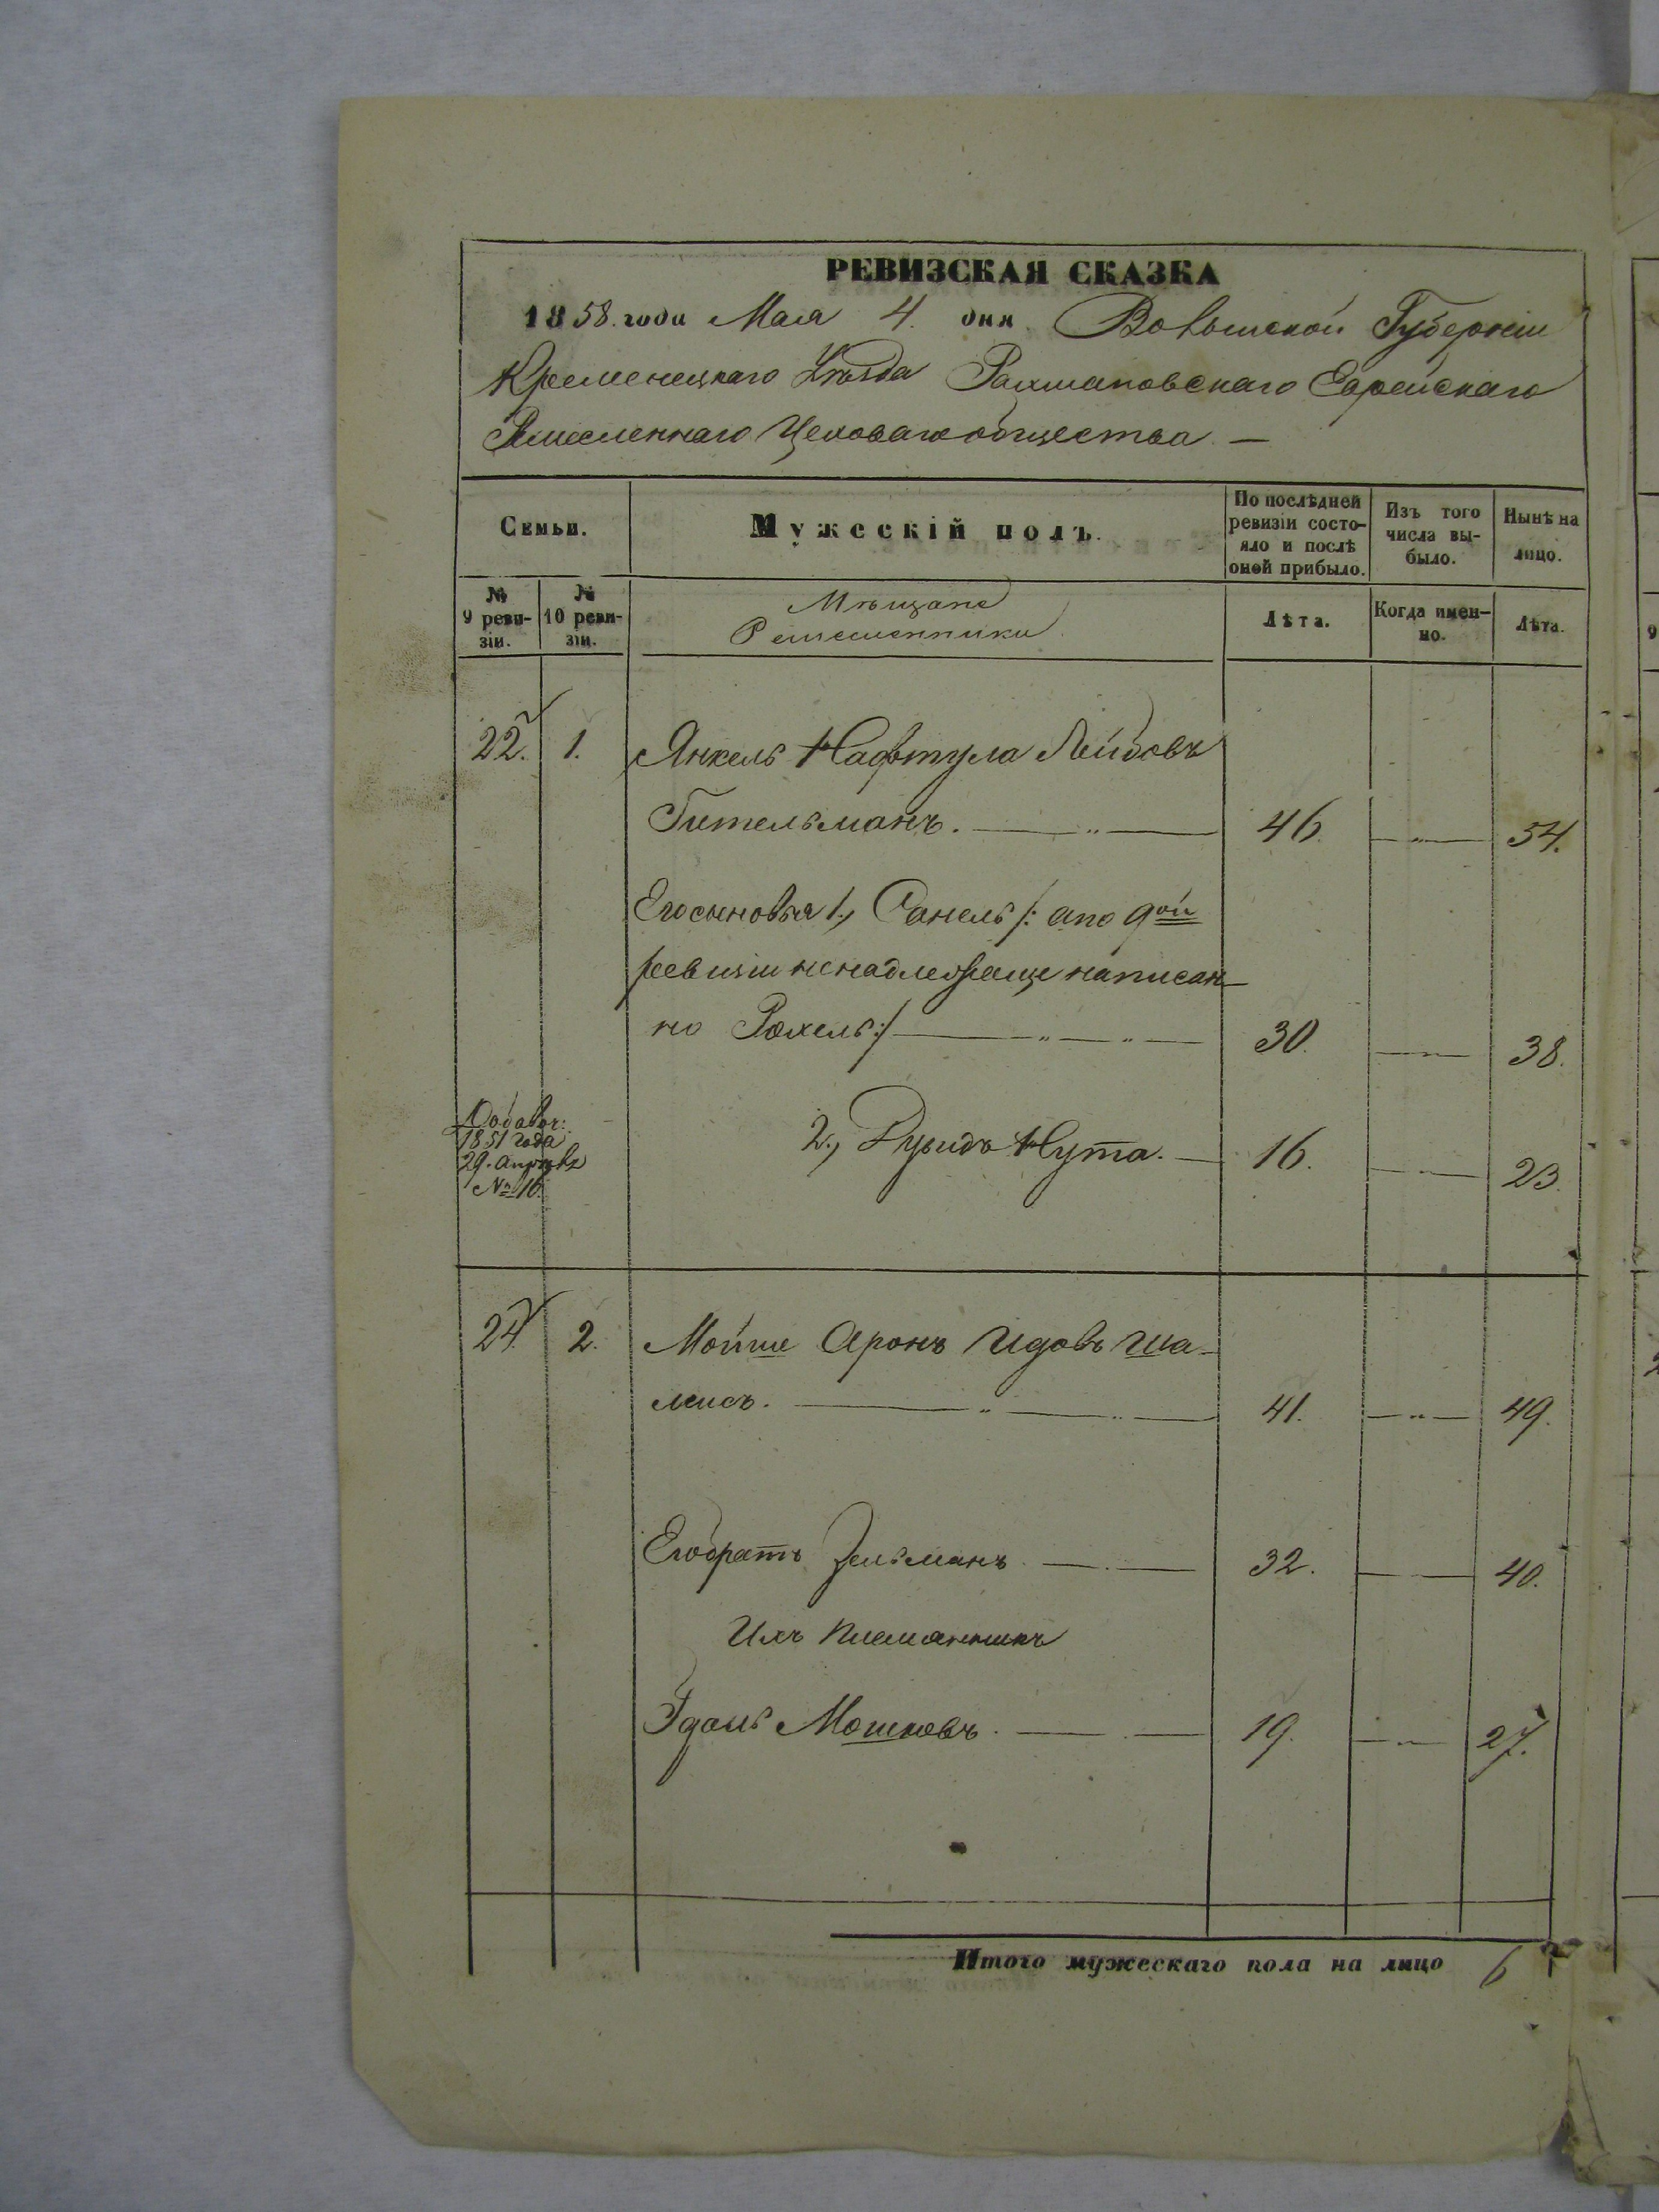 РЕВИЗСКАЯ СКАЗКА
1858. года Мая 4. дня Волынской Губерніи
Кременецкаго Уѣзда Рахмановскаго Еврейскаго
Ремесленнаго Цеховаго общества —
Семьи.
Мужескій полъ.
По послѣдней ревизіи состо-
яло и послѣ оной прибыло.
Изъ того числа вы-
было.
Нынѣ на лицо.
№ 9 реви-
зіи.
№ 10 реви-
зіи.
Мѣщане
Ремесленники
Лѣта.
Когда имен-
но.
Лѣта.
22. 1. Янкель Нафтула Лейбовъ
Гительманъ. — " — 46. — " — 54.
Его сыновья 1, Санель /: а по 9ой
ревизіи ненадлежаще написан-
но Рохель :/ — " — " — 30. — " — 38.
Добавоч:
1851 года
29. Апрѣля
№ 16.
2, Нута. — 16. — " — 23.
24. 2. Мойше Аронъ Идовъ Ша-
мисъ. — " — " — 41. — " — 49.
Его братъ Зельманъ. — 32. — 40.
Ихъ племянникъ
Мошковъ. — 19. — " — 27.
Итого мужескаго пола на лицо 6